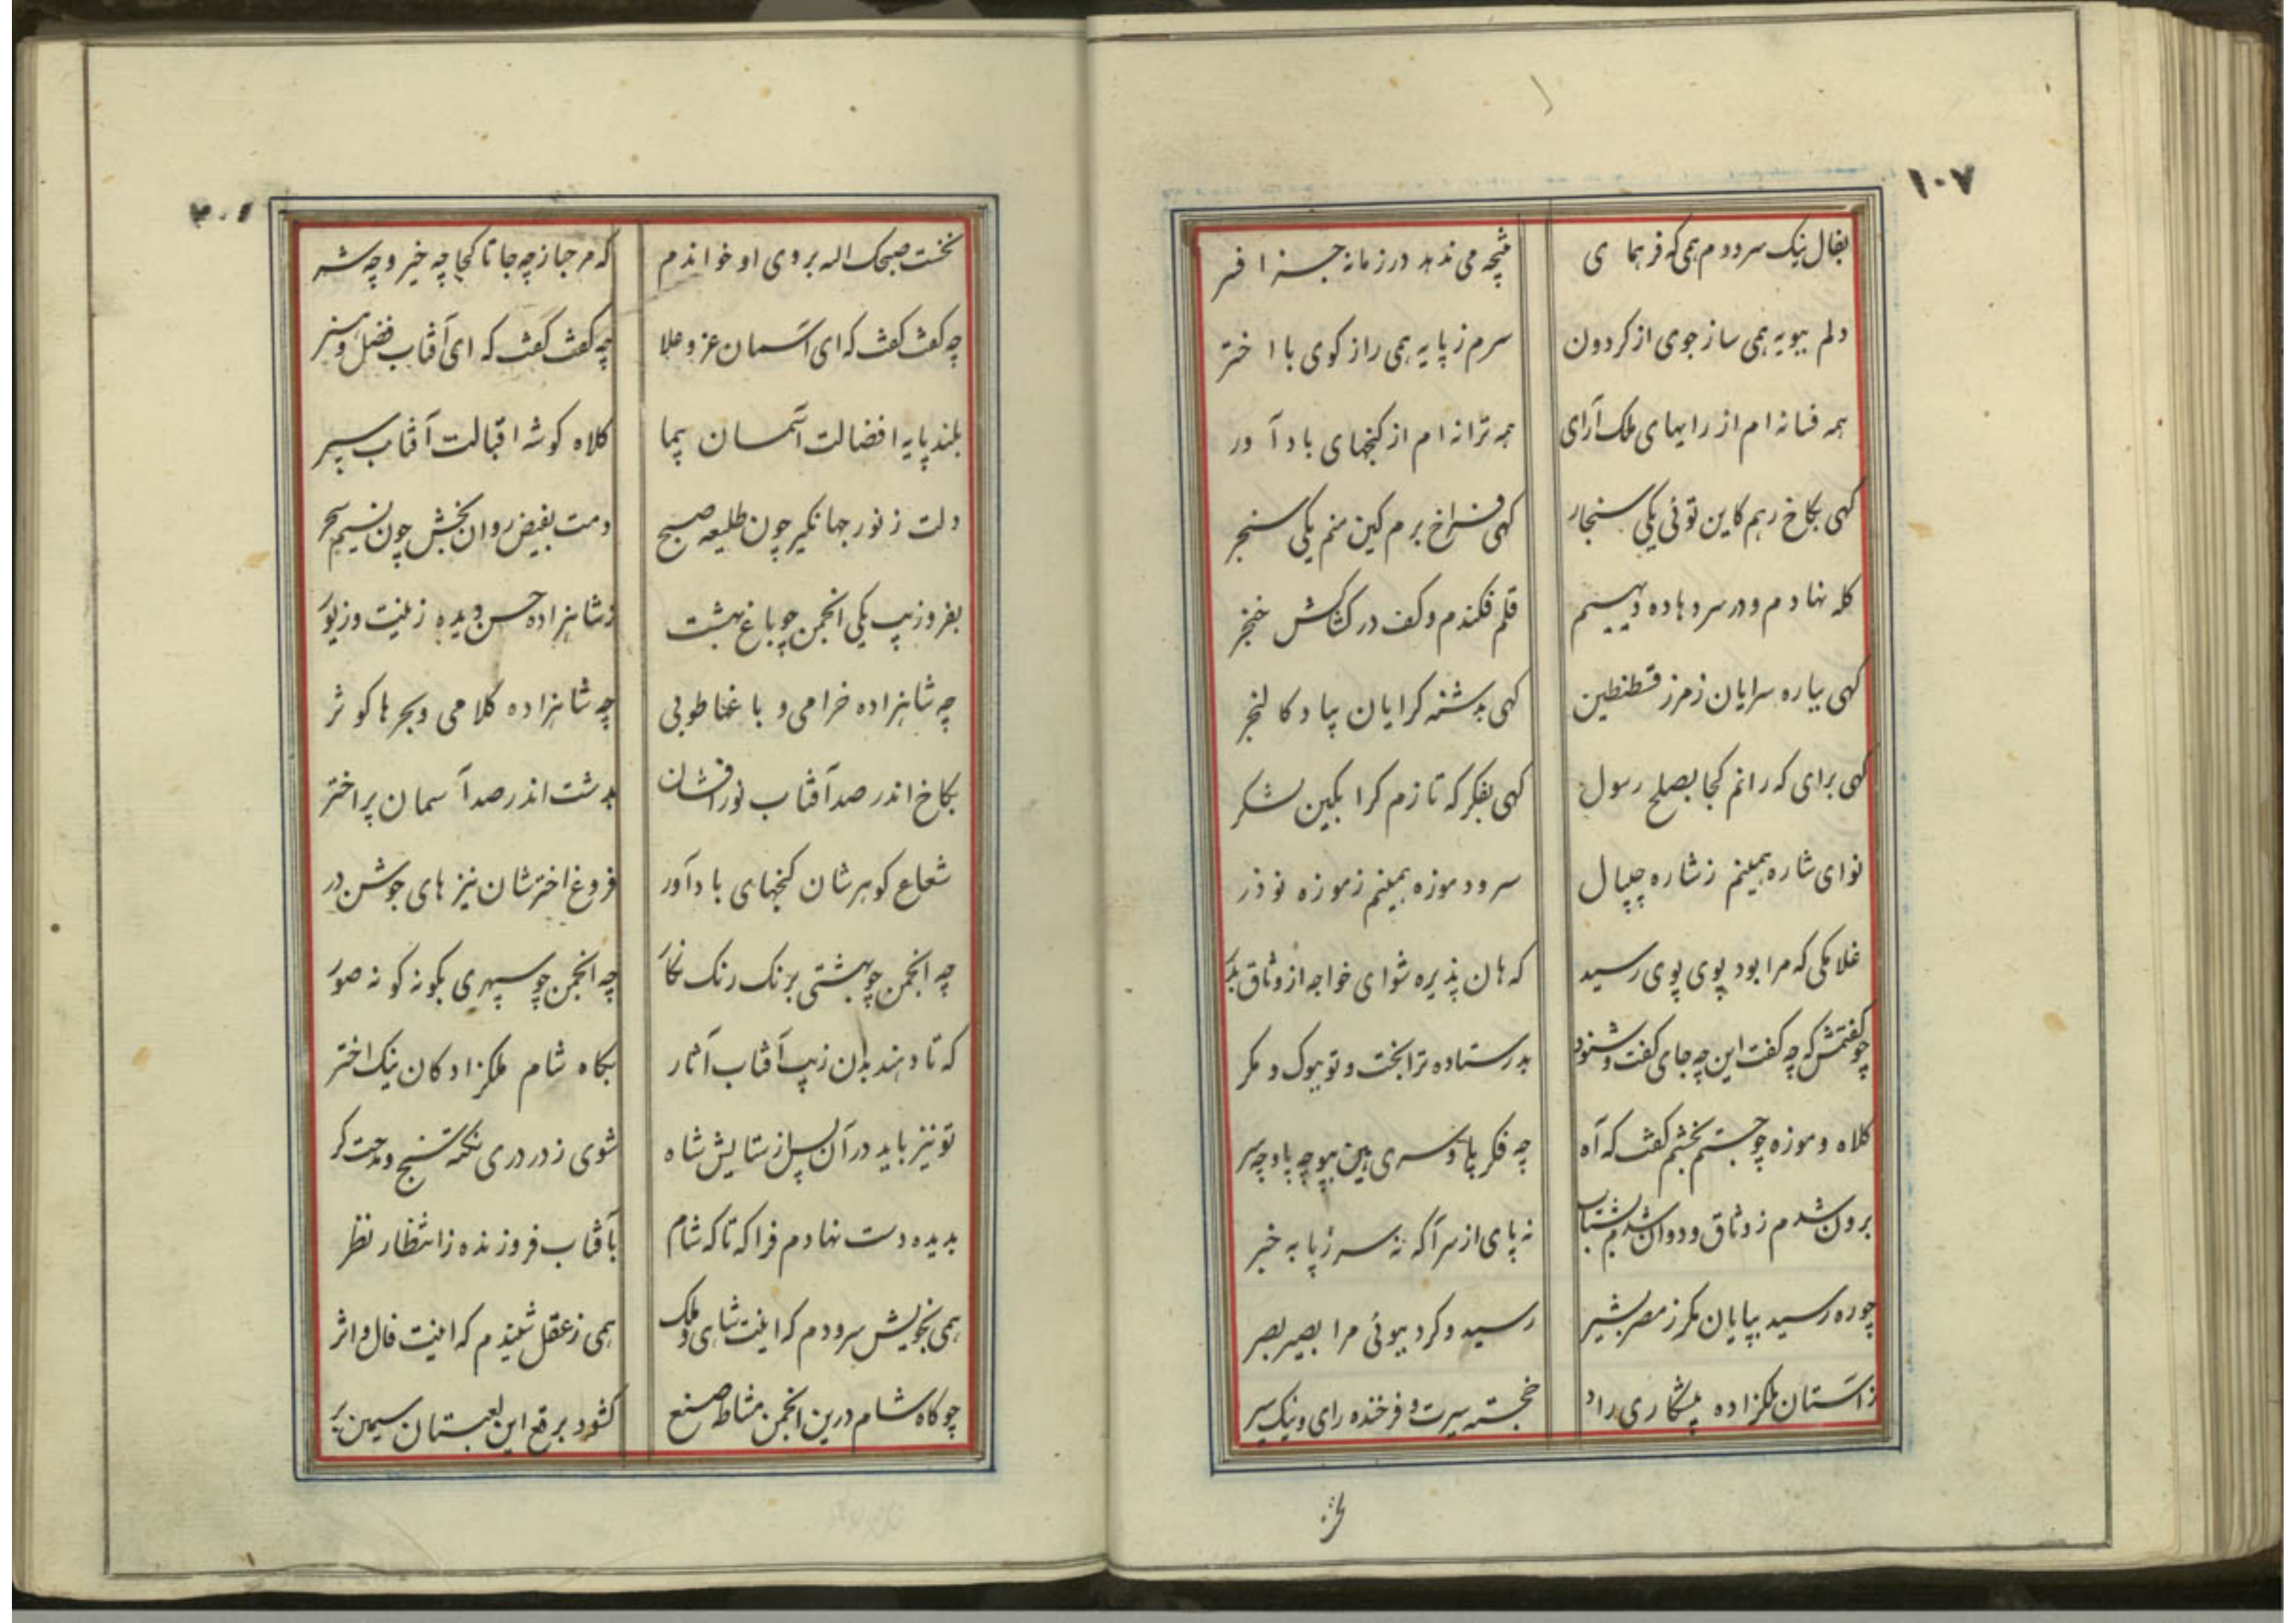 ۱۰۷
بفال نیک سرودم همی که فر همای
نتیجه می ندهد در زمانه جز افسر
دلم بپویه همی ساز جوی از کردون
سرم ز پایه همی راز کوی با اختر
همه فسانه ام از رایهای ملک آرای
همه ترانه ام از کنجهای باد آور
کهی بکاخ رهم کاین توئی یکی سنجار
کهی فراخ برم کین منم یکی سنجر
کله نهادم و در سر و هاده دیهیم
قلم فکندم و کف در کشاکش خنجر
کهی بیاره سرایان ز مرز قسطنطین
کهی بدشنه کرایان بیاد کالنجر
کهی برای که رانم کجا بصلح رسول
کهی بفکر که تازم کرا بکین لشکر
نوای شاره همینم ز شاره چیپال
سرود موزه همینم ز موزه نوذر
غلامکی که مرا بود پوی پوی رسید
که هان پذیره شو ای خواجه از وثاق بدر
چو کفتمش که چه کفت این چه جای کفت و شنود
پرستاده ترا بخت و تو ببوک و مکر
کلاه و موزه چو جستم بخشم کفت که آه
چه فکر پا و سری هین بپو چه پا و چه سر
برون شدم ز وثاق و دوان شدم بشتاب
نه پای از سر آکه نه سر ز پا به خبر
چو ره رسید بپایان مکر ز مصر بشیر
رسید و کرد ببوئی مرا بصیر بصر
ز آستان ملکزاده پیشکاری راد
خجسته سیرت و فرخنده رای و نیک سیر
نخست صبحک اله بروی او خواندم
که مرحبا ز چه جا تا کجا چه خیر و چه شر
چه کفت کفت که ای آسمان عز و علا
چه کفت کفت که ای آفتاب فضل و هنر
بلند پایه افضالت آسمان پیما
کلاه کوشه اقبالت آفتاب سپر
دلت ز نور جهانکیر چون طلیعه صبح
دمت بفیض روان بخش چون نسیم سحر
بفر و زیب یکی انجمن چو باغ بهشت
ز شاهزاده حسن دیده زینت و زیور
چه شاهزاده خرامی و باغها طوبی
چه شاهزاده کلامی و بحرها کوثر
بکاخ اندر صد آفتاب نور افشان
بدشت اندر صد آسمان پر اختر
شعاع کوهرشان کنجهای باد آور
فروغ اخترشان نیزهای جوشن در
چه انجمن چو بهشتی برنک رنک نکار
چه انجمن چو سپهری بکونه کونه صور
که تا دهند بدان زیب آفتاب آثار
بکاه شام ملکزادکان نیک اختر
تو نیز باید در آن پس از ستایش شاه
شوی ز در دری نکته سنج و مدحت کر
بدیده دست نهادم فرا که تا که شام
بآفتاب فروزنده ز انتظار نظر
همی بخویش سرودم که اینت شاهی و ملک
همی ز عقل شنیدم که اینت فال و اثر
چو کاه شام درین انجمن مشاطه صنع
کشود برقع این لعبتان سیمین بر